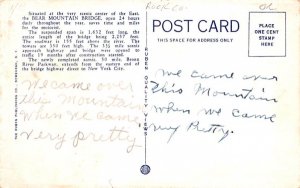 ROCK CO.
Situated at the very scenic center of the East,
the BEAR MOUNTAIN BRIDGE, open 24 hours
daily throughout the year, saves time and miles
for the motorist.
The suspended span is 1,632 feet long, the
entire length of the bridge being 2,257 feet.
The roadway is 155 feet above the river. The
towers are 350 feet high. The 3½ mile scenic
approach highway and bridge were opened to
traffic 19 months after construction started.
The newly completed scenic, 50 mile, Bronx
River Parkway, extends from the eastern end of
the bridge highway direct to New York City.
We came over
this Mountain
when we came
very pretty
RUBEN QUALITY VIEWS
POST CARD
THIS SPACE FOR ADDRESS ONLY
PLACE ONE
CENT STAMP
HERE
We came over
this Mountain
when we came
very Pretty.